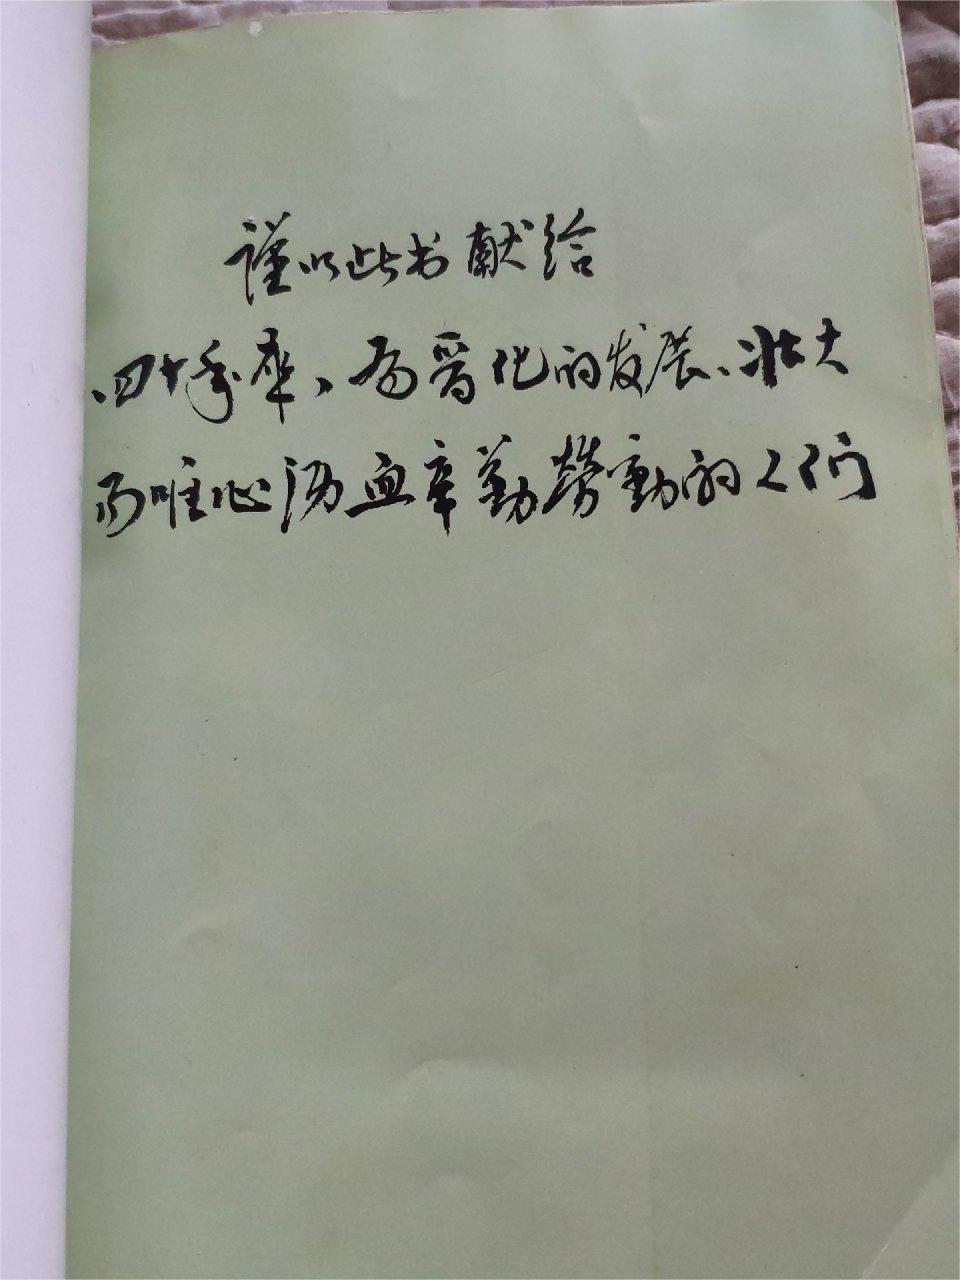 謹以此书献给
四十年来,为晋化的发展、壮大
而呕心沥血辛勤勞動的人们